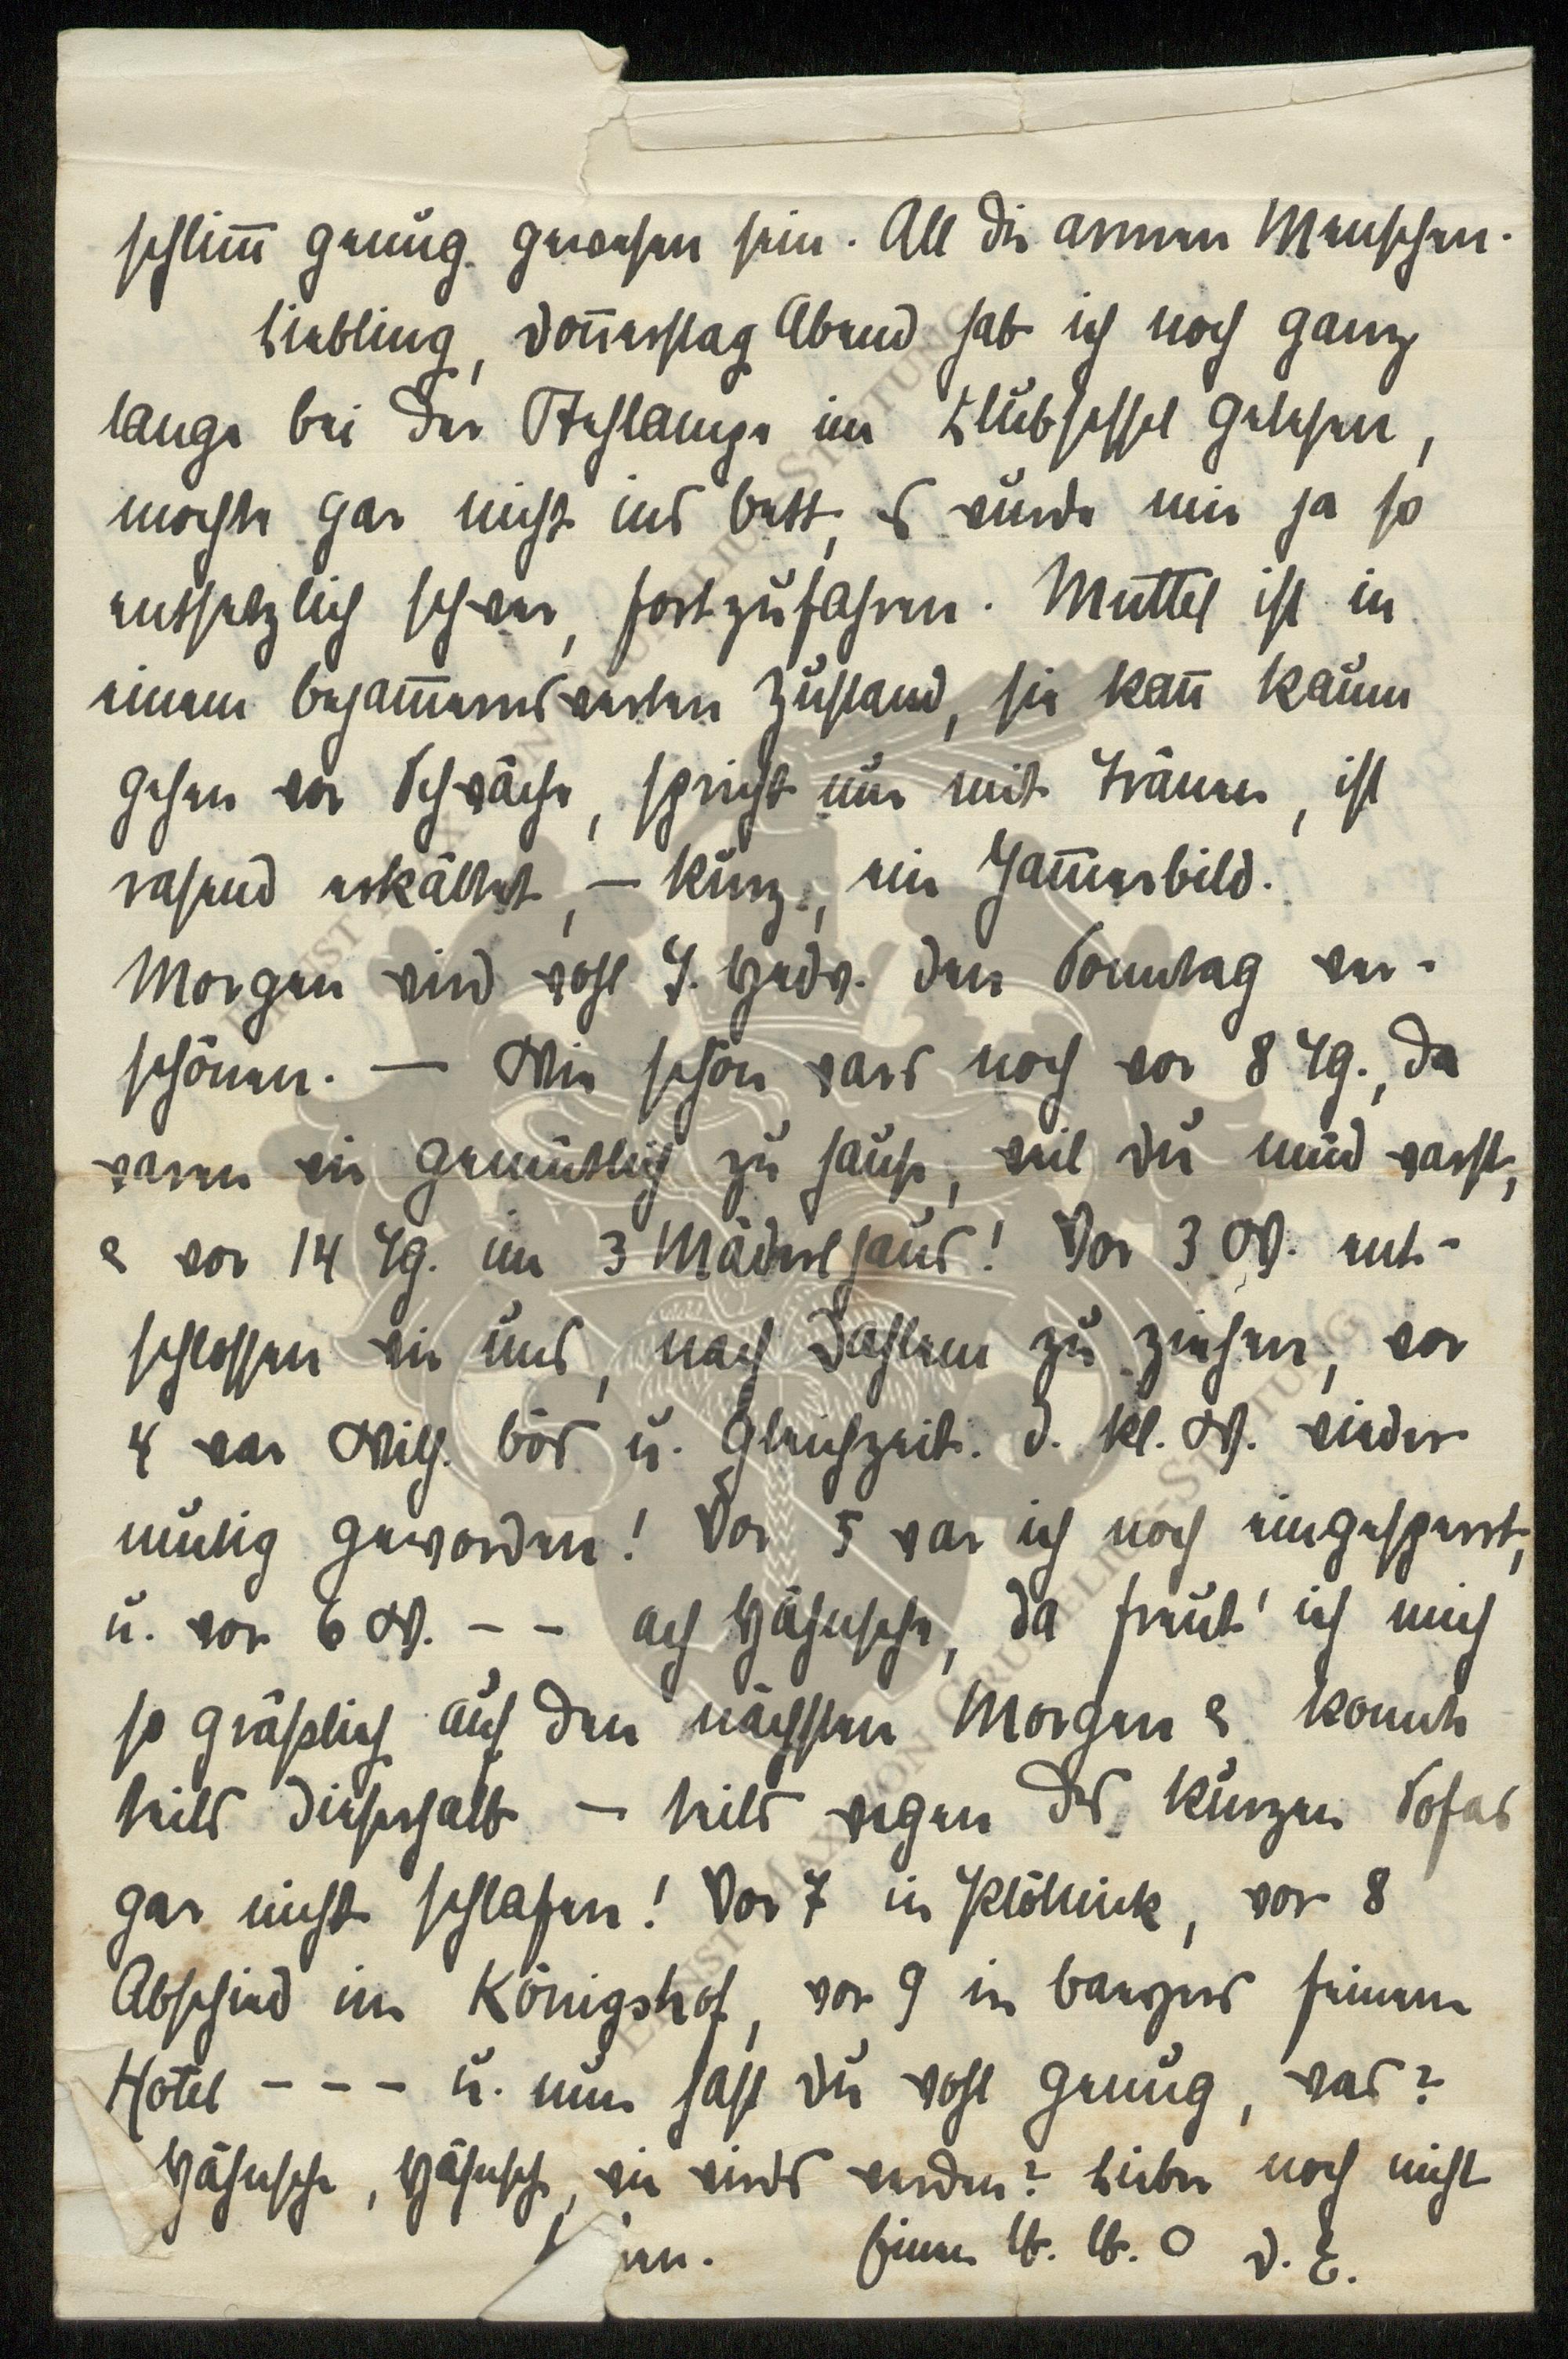 schlim̅ genug gewesen sein. All die armen Menschen.
Liebling, Don̅erstag Abend hab ich noch ganz
lange bei der Stehlampe im Klubsessel gelesen,
mochte gar nicht ins Bett, es wurde mir ja so
entsetzlich schwer, fortzufahren. Muttel ist in
einem bejam̅ernswerten Zustand, sie kan̅ kaum
gehen vor Schwäche, spricht nur mit Tränen, ist
rasend erkältet, – kurz, ein Jam̅erbild.
Morgen wird wohl T. Hedw. den Sonntag ver-
schönen. — Wie schön wars noch vor 8 Tg., da
waren wir gemütlich zu Hause, weil Du müd warst,
& vor 14 Tg. im 3 Mäderlhaus! Vor 3 W. ent-
schlossen wir uns, nach Dahlem zu ziehen, vor
4 war Wilh. bös u. gleichzeit. d. kl. W. wieder
mutig geworden! Vor 5 war ich noch eingesperrt,
u. vor 6 W. – – ach Hähnsche, da freut' ich mich
so gräßlich auf den nächsten Morgen & konnte
teils dieserhalb – teils wegen des kurzen Sofas
gar nicht schlafen! Vor 7 in vor 8
Abschied im Königshof, vor 9 in feinem
Hotel – – – u. nun hast Du wohl genug, was?
Hähnsche, Hähnsche, wie wirds werden? Lieber noch nicht
Einen lb. lb. O D. E.
ERNST MAX VON GRUNELIUS-STIFTUNG
ERNST MAX VON GRUNELIUS-STIFTUNG